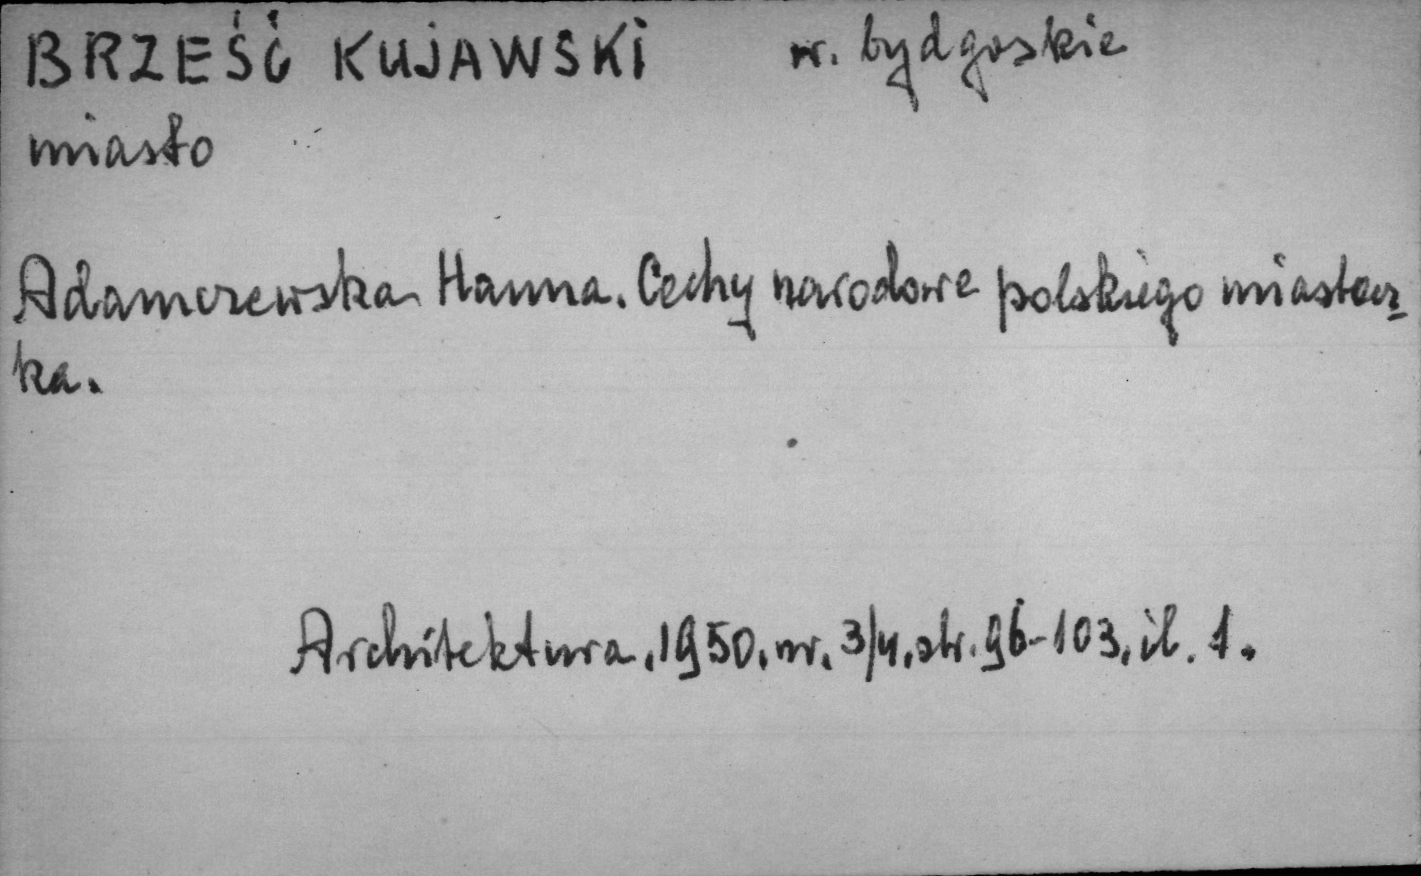 BRZEŚĆ KUJAWSKI w. bydgoskie
miasto
Adamczewska Hanna. Cechy narodowe polskiego miastecz-
ka.
Architektura. 1950. nr. 3/4. str. 96-103. il. 1.